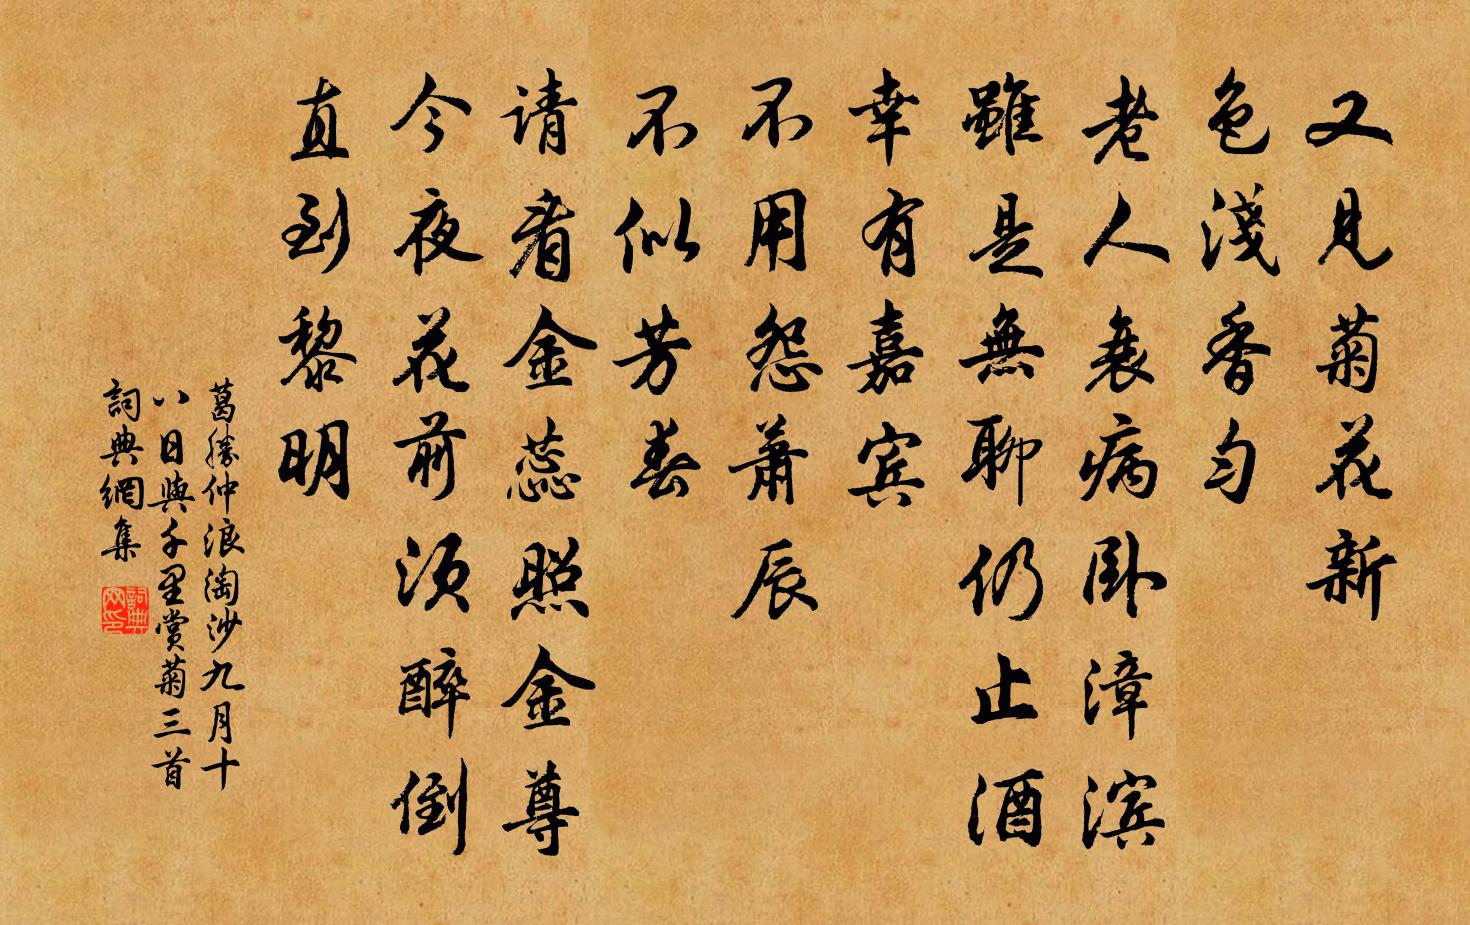 又见菊花新
色淺香匀
老人衰病卧漳滨
雖是無聊仍止酒
幸有嘉宾
不用怨萧辰
不似芳春
请看金蕊照金尊
今夜花前须醉倒
直到黎明
葛勝仲浪淘沙九月十
八日與千里赏菊三首
詞典網集
詞典网印